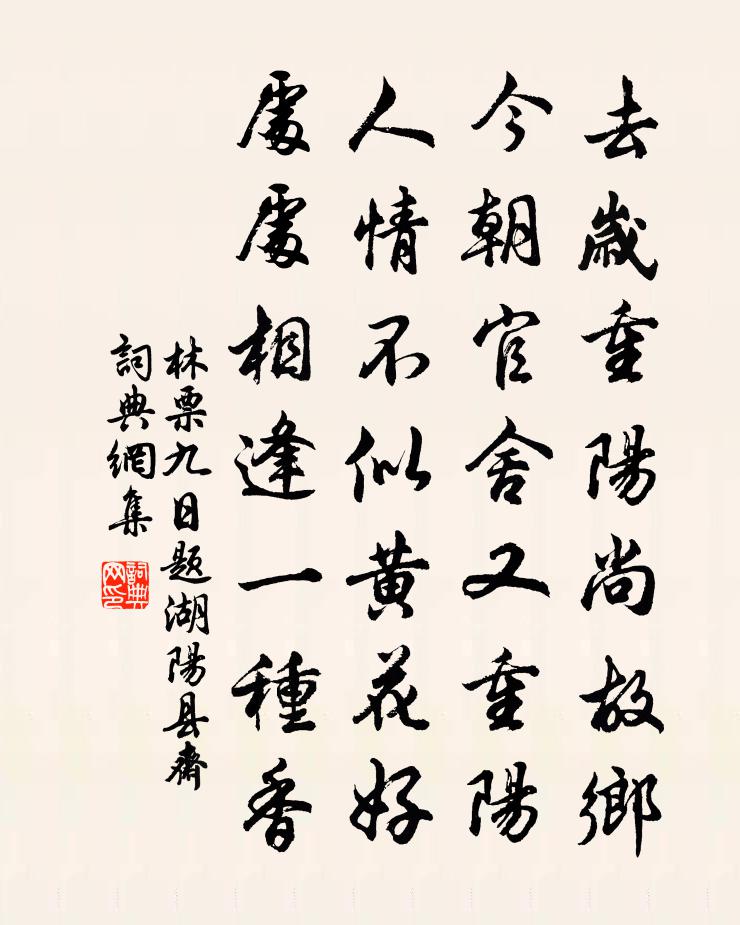 去歲重陽尚故鄉
今朝官舍又重陽
人情不似黃花好
處處相逢一種香
林栗九日題湖陽县齋
詞典網集
詞典網印